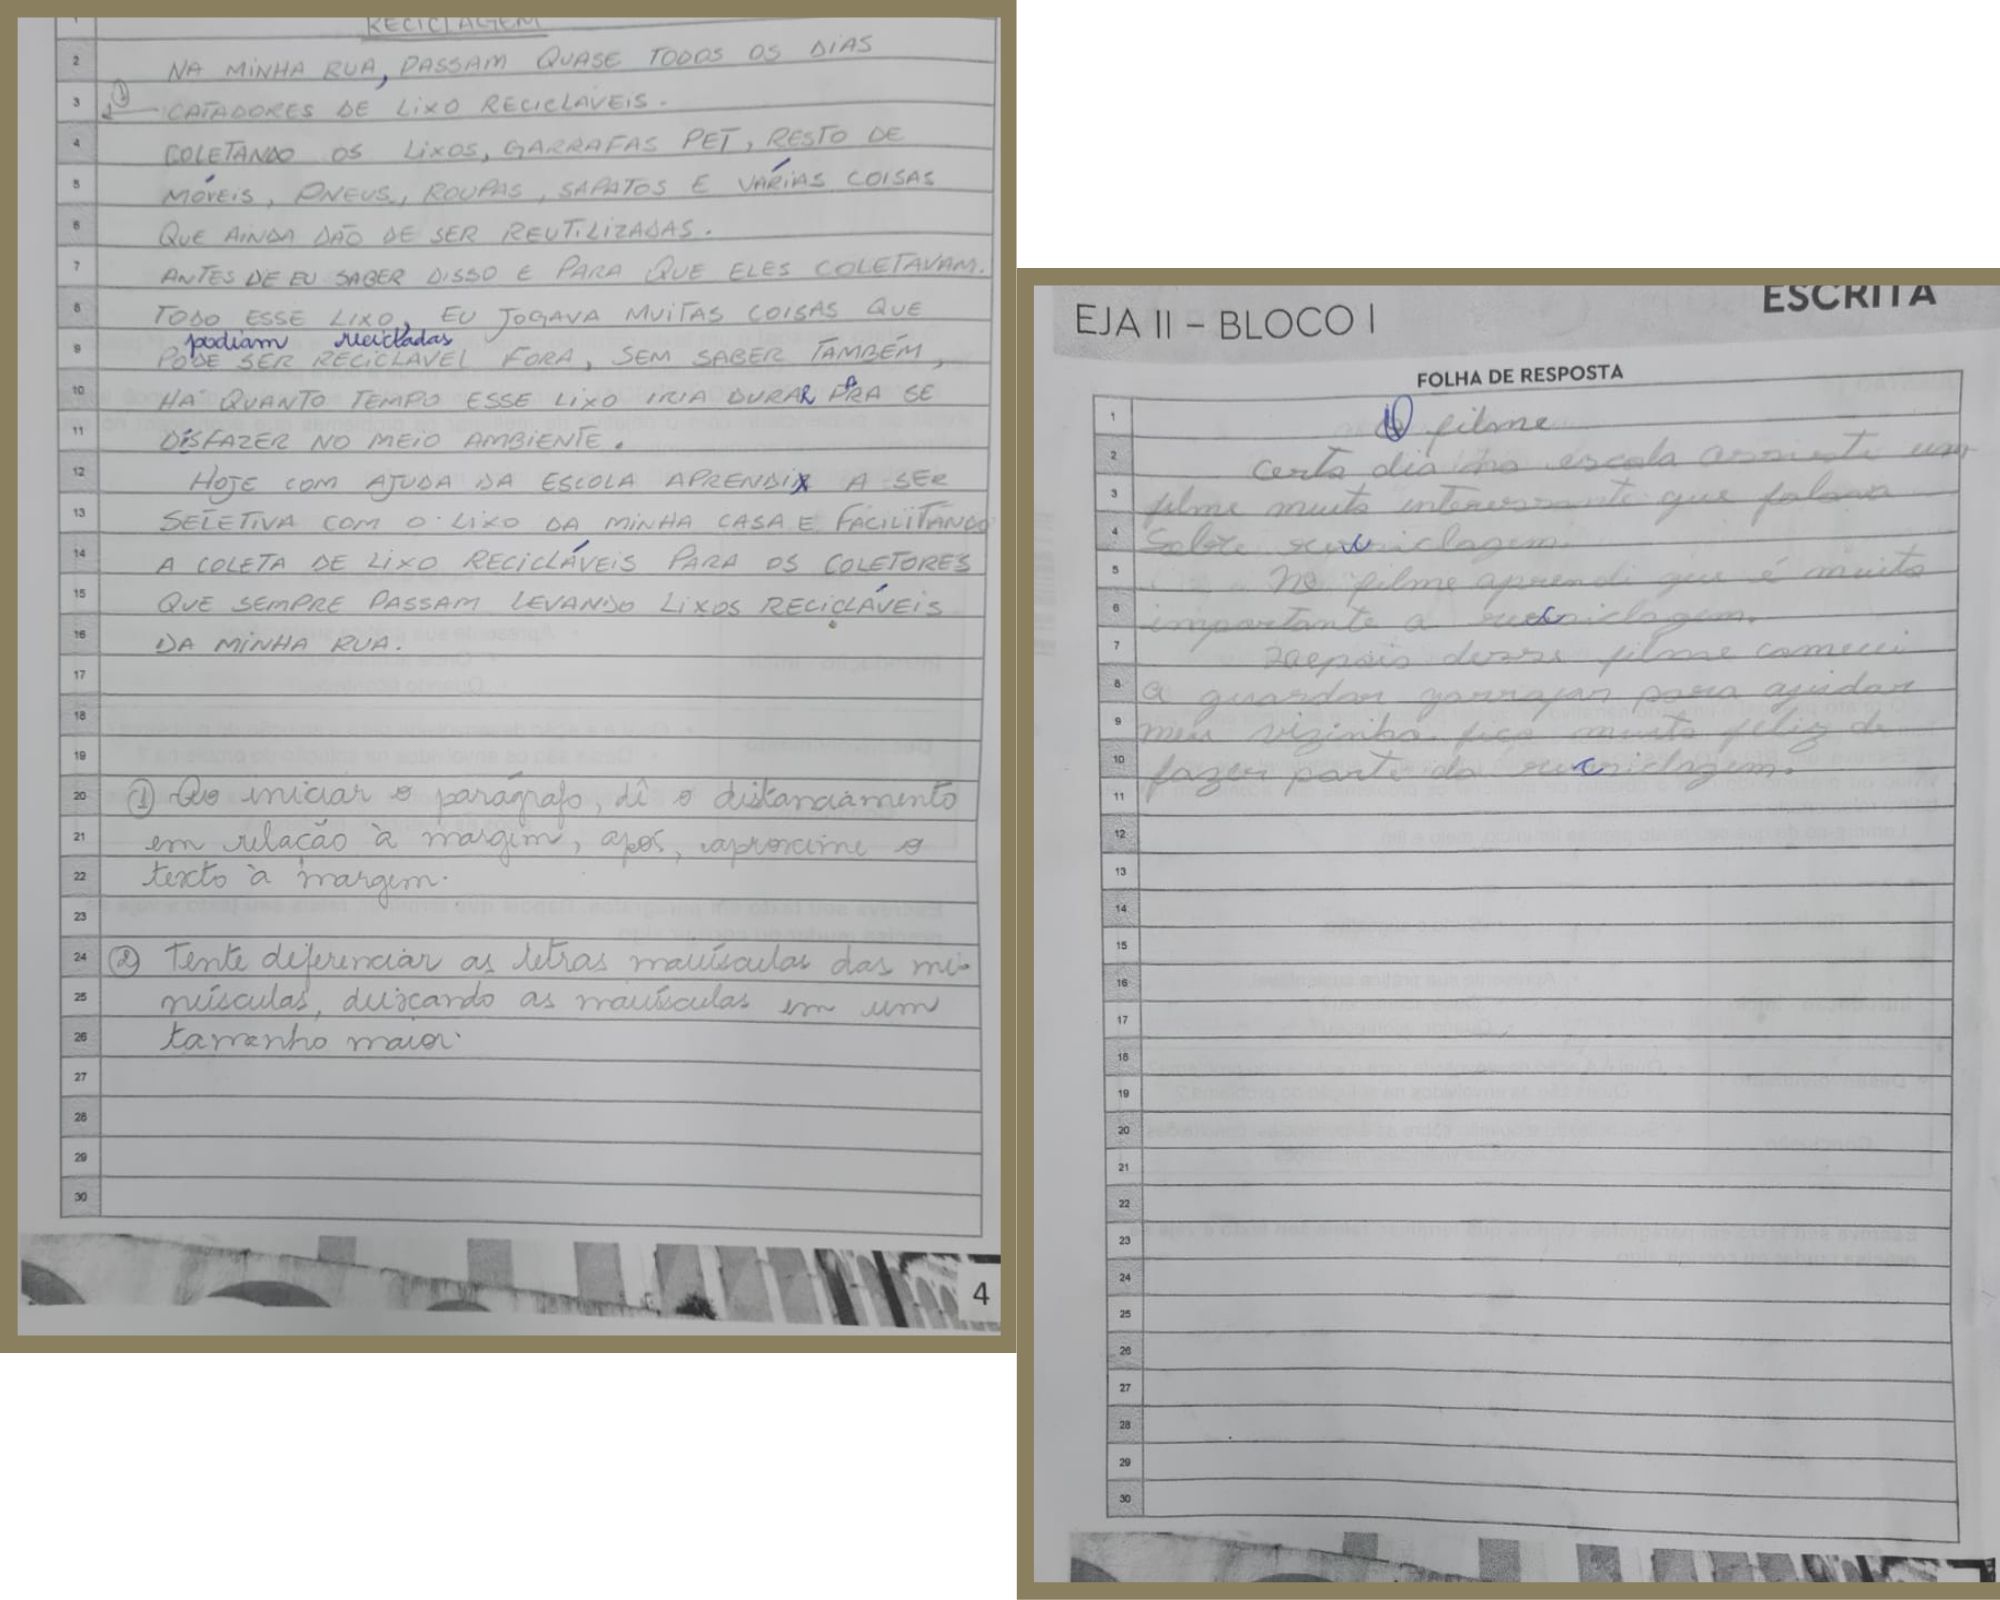 RECICLAGEM
NA MINHA RUA, PASSAM QUASE TODOS OS DIAS
① CATADORES DE LIXO RECICLAVEIS.
COLETANDO OS LIXOS, GARRAFAS PET, RESTO DE
MÓVEIS, PNEUS, ROUPAS, SAPATOS E VÁRIAS COISAS
QUE AINDA DÃO DE SER REUTILIZADAS.
ANTES DE EU SABER DISSO E PARA QUE ELES COLETAVAM.
TODO ESSE LIXO, EU JOGAVA MUITAS COISAS QUE
podiam recicladas
PODE SER RECICLAVEL FORA, SEM SABER TAMBÉM,
HÁ QUANTO TEMPO ESSE LIXO IRIA DURAR PRA SE
DISFAZER NO MEIO AMBIENTE.
HOJE COM AJUDA DA ESCOLA APRENDI A SER
SELETIVA COM O LIXO DA MINHA CASA E FACILITANDO
A COLETA DE LIXO RECICLÁVEIS PARA OS COLETORES
QUE SEMPRE PASSAM LEVANDO LIXOS RECICLÁVEIS
DA MINHA RUA.
① Ao iniciar o parágrafo, dê o distanciamento
em relação à margem, após, aproxime o
texto à margem.
② Tente diferenciar as letras maiúsculas das mi-
núsculas, deixando as maiúsculas em um
tamanho maior.
1
2
3
4
5
6
7
8
9
10
11
12
13
14
15
16
17
18
19
20
21
22
23
24
25
26
27
28
29
30
4
EJA II – BLOCO I
ESCRITA
FOLHA DE RESPOSTA
O filme
Certo dia na escola assisti um
filme muito interessante que falava
Sobre reciclagem.
No filme aprendi que é muito
importante a reciclagem.
Depois desse filme comecei
a guardar garrafas para ajudar
meu vizinho fico muito feliz de
fazer parte da reciclagem.
1
2
3
4
5
6
7
8
9
10
11
12
13
14
15
16
17
18
19
20
21
22
23
24
25
26
27
28
29
30